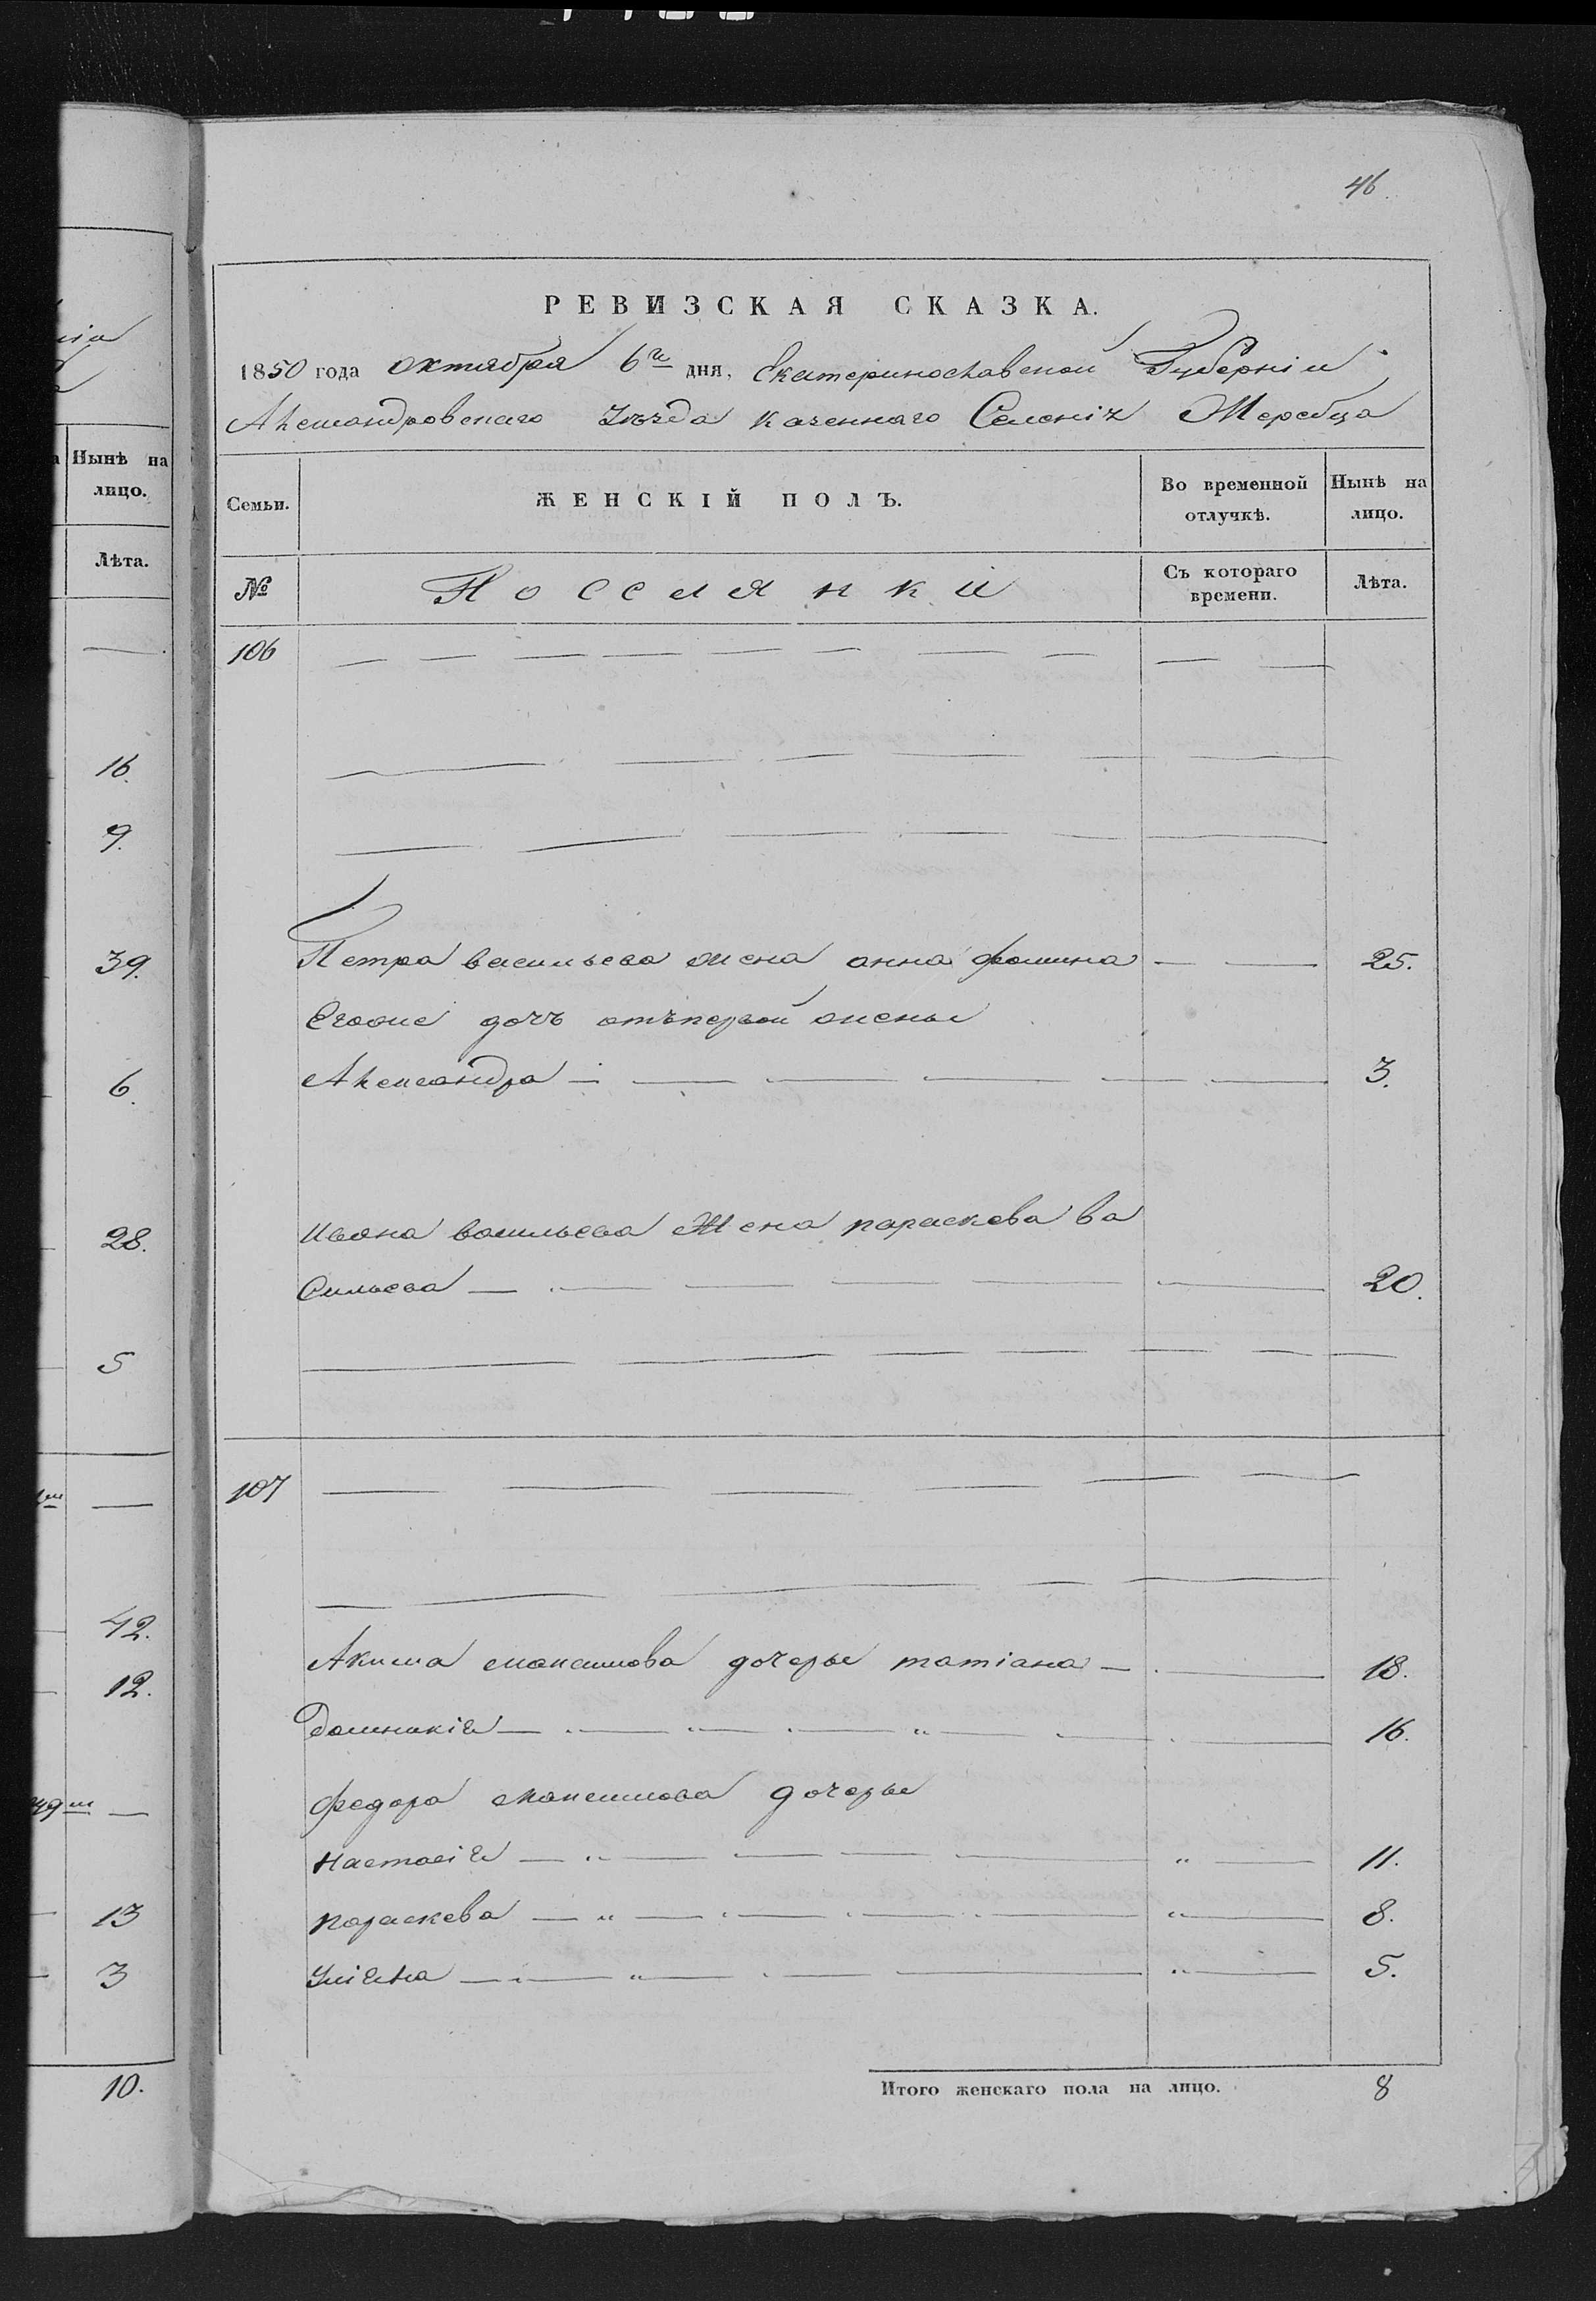 46.
РЕВИЗСКАЯ СКАЗКА.
1850 года октября 6го дня, Екатеринославской Губерніи
Александровскаго Уѣзда казеннаго Селенія Жеребца
Нынѣ на лицо.
Лѣта.
16.
9.
39.
6.
28.
5
42.
12.
13
3
10.
Семьи.
ЖЕНСКІЙ ПОЛЪ.
Во временной отлучкѣ.
Нынѣ на лицо.
№
Поселянки
Съ котораго времени.
Лѣта.
106
Петра васильева жена анна фомина 25.
Егоже дочь отъпервой жены
Александра 3.
Ивана васильева Жена параскева ва
сильева 20.
107
Акима максимова дочеры татіана 18.
Домникія 16.
федора максимова дочеры
Настасія 11.
параскева 8.
Уліяна 5.
Итого женскаго пола на лицо. 8